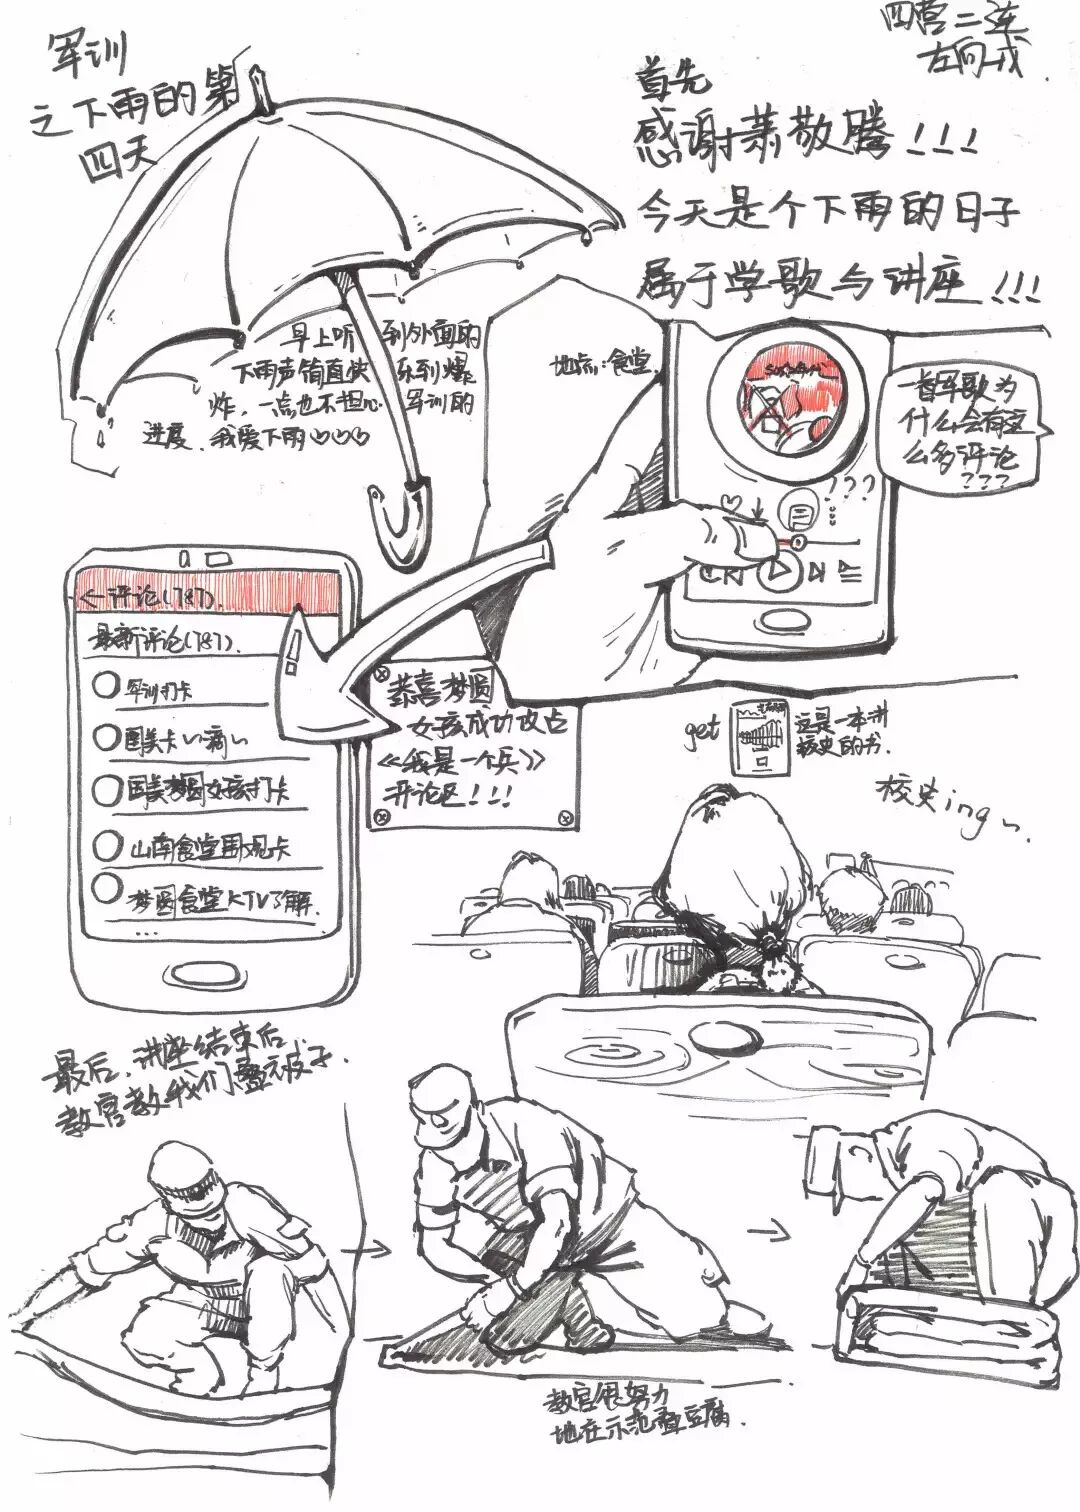 军训
之下雨的第
四天
四营二连
左向戎.
首先
感谢萧敬腾!!!
今天是个下雨的日子
属于学歌与讲座!!!
早上听到外面的
下雨声简直快乐到爆
炸,一点也不担心军训的
进度.我爱下雨♡♡♡
地点:食堂.
一首军歌为
什么会有这
么多评论
???
???
←评论(787).
最新评论(787).
军训打卡
国美卡~滴~
国美梦圆女孩打卡
山南食堂围观卡
梦圆食堂KTV了解.
...
恭喜梦圆
女孩成功攻占
《我是一个兵》
评论区!!!
get
这是一本讲
校史的书.
校史ing~.
最后,讲座结束后,
教官教我们叠被子.
教官很努力
地在示范叠豆腐.